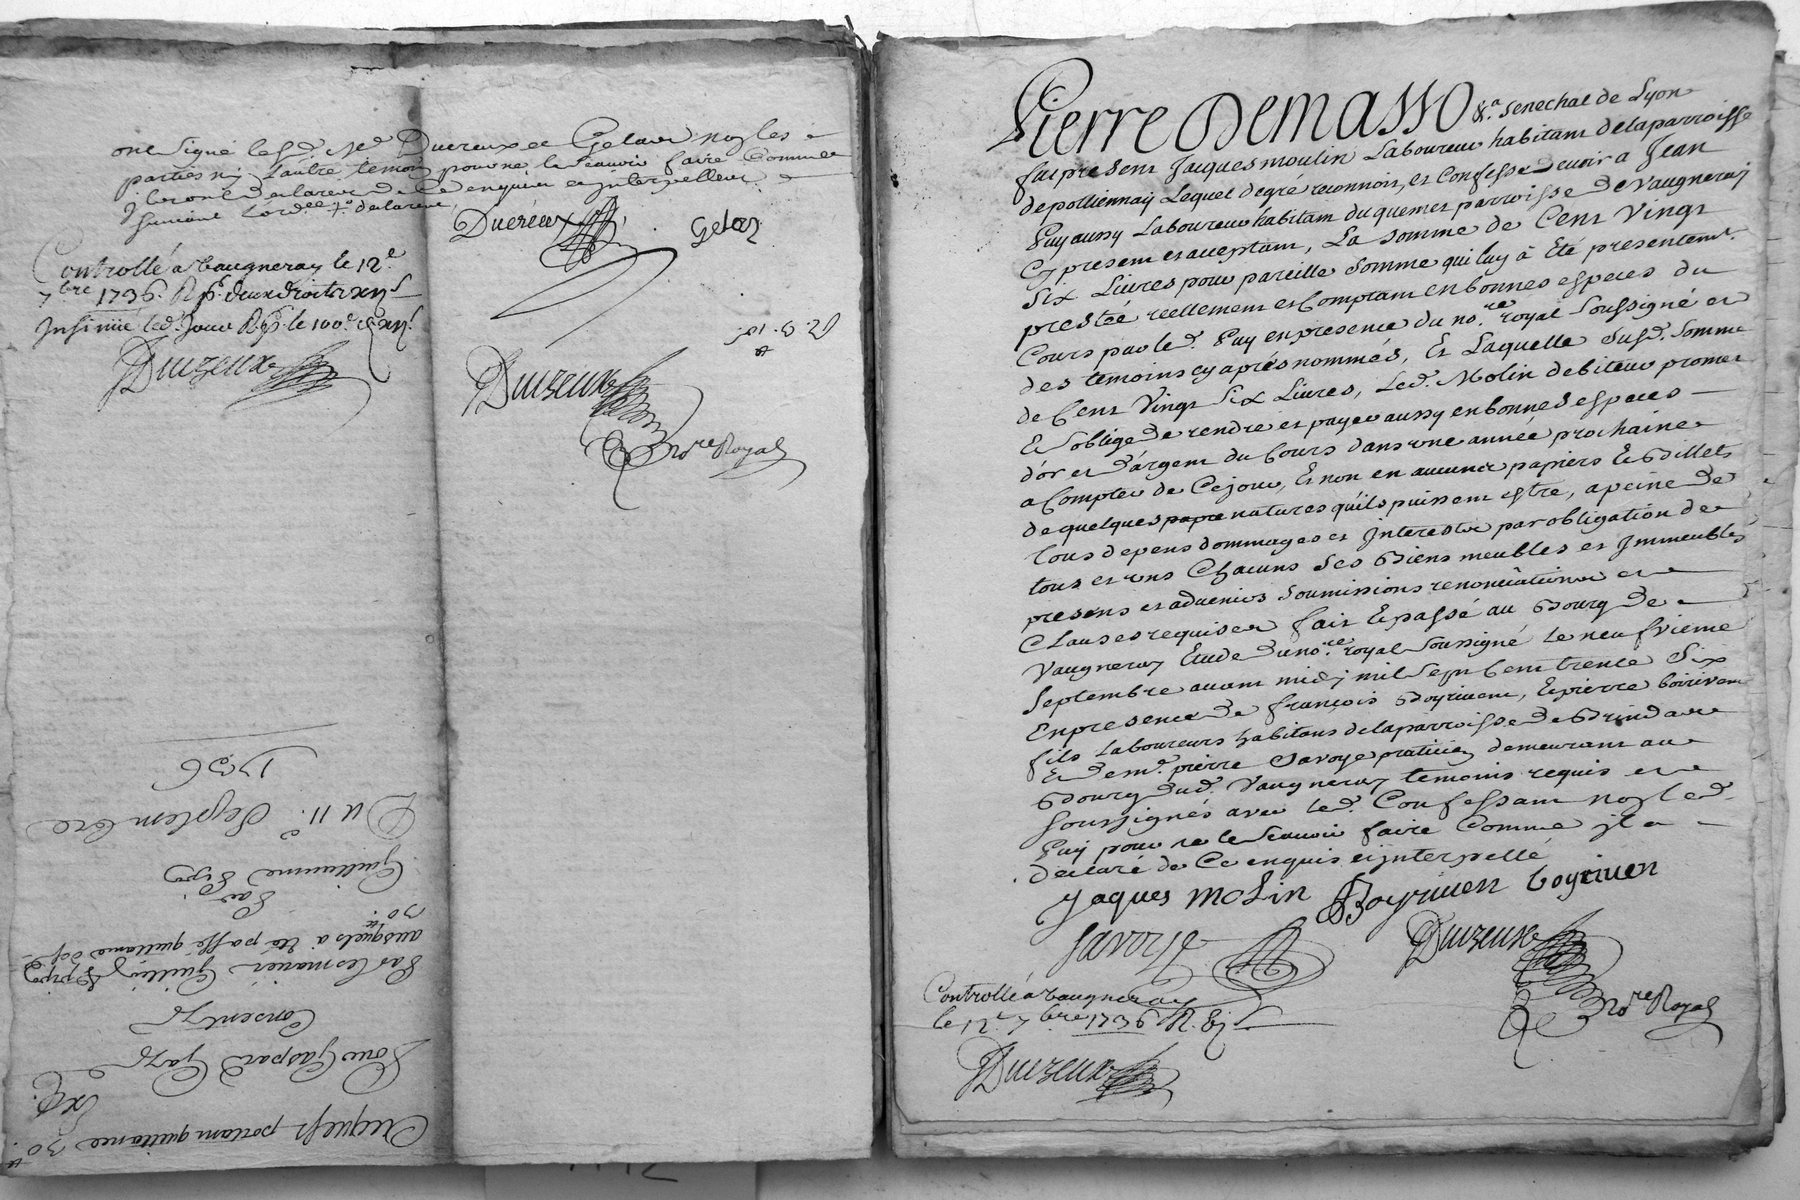 ont signé led. Me. Ducreux et Gelas non les
parties ny l'autre temoin pour ne le scavoir faire comme
jls ont declaré de ce enquis et interpellés
suivant l'ord.ce declarent
Ducreux
Gelas
Controllé a Vaugneray le 12e
7bre 1736. R
Insinué led. Jour
Duizeux
Duizeux
No.re Royal
Du 11e Septembre
1736
Par
Guillaume
ausquels a eté passé quittance
30tt
Par les mariés
Consentye
Pour Gaspard Gazo
Exp.
Acquest portant quittance 30tt
Pierre Demasso &.a Senechal de Lyon
fut present Jacques moulin Laboureur habitant de la parroisse
de pollionnay Lequel de gré reconnoit, et Confesse devoir a Jean
Puy aussy Laboureur habitant du quemet parroisse de Vaugneray
Cy present et acceptant, La somme de Cent Vingt
Six Livres pour pareille somme qui luy à Eté presentemt.
prestée reellement et Comptant en bonnes especes du
Cours par led. Puy en presence du no.re royal soussigné et
des temoins cy aprés nommés, Et Laquelle susd. somme
de Cent Vingt Six Livres, Led. Molin debiteur promet
Et s'oblige de rendre et payer aussy en bonnes especes
d'or et d'argent du Cours dans une année prochaine
a Compter de Cejour, Et non en aucuns papiers Et Billets
de quelques papie natures qu'ils puissent estre, a peine de
tous depens dommages et Interests par obligation de
tous et uns Chacuns ses Biens meubles et Immeubles
presens et advenirs soumissions renonciations et
Clauses requises fait Et passé au Bourg de
Vaugneray Etude du no.re royal soussigné le neufvieme
Septembre avant midy mil sept Cent trente Six
En presence de françois Boyrivent, Et pierre boirivent
fils Laboureurs habitans de la parroisse de Brindas
Et de me. pierre Savoye praticien demeurant au
Bourg dud. Vaugneray temoins requis et
soussignés avec led. Confessant non led.
Puy pour ne le scavoir faire Comme jl a
declaré de Ce enquis et jnterpellé
Jaques molin Boyriven boyriven
Savoye
Duizeux
No.re Royal
Controllé a Vaugneray
le 12e 7bre 1736 R.
Duizeux